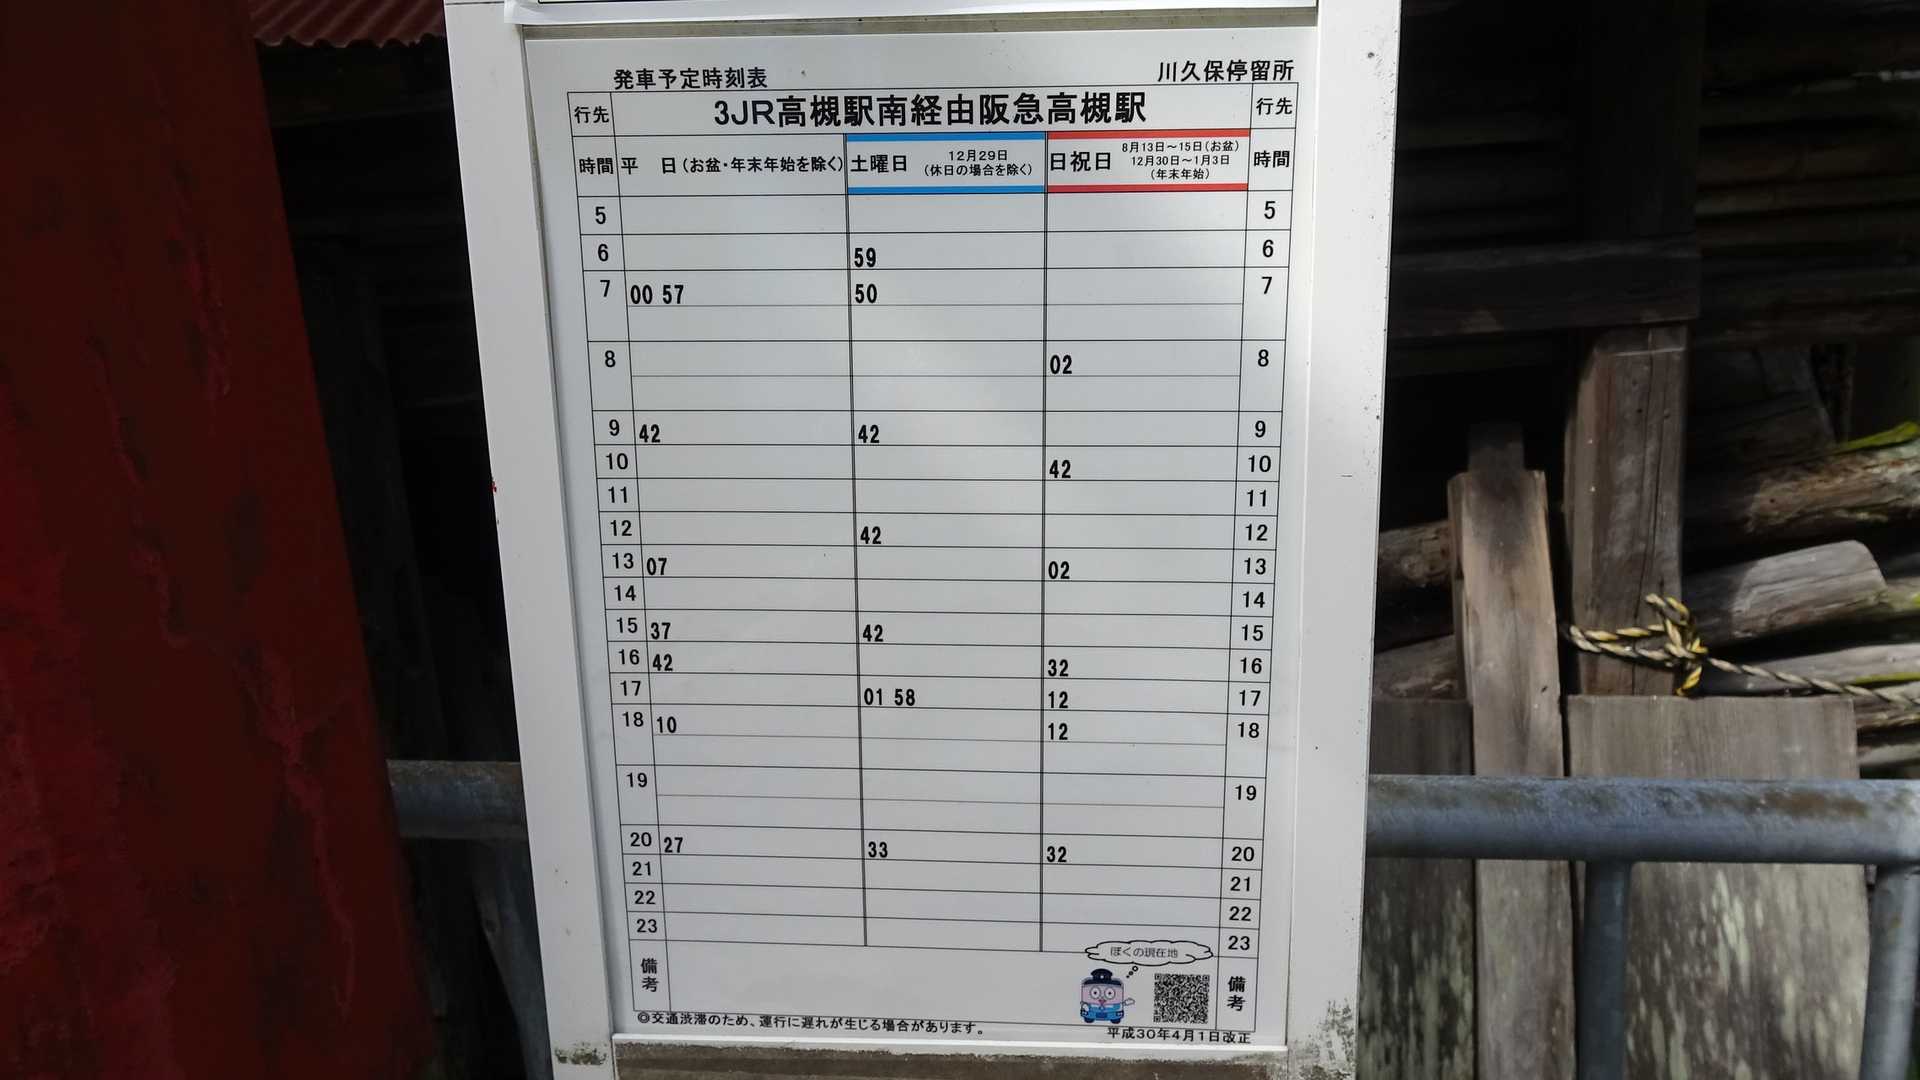 発車予定時刻表 川久保停留所
行先 3JR高槻駅南経由阪急高槻駅 行先
時間 平 日(お盆・年末年始を除く) 土曜日 12月29日(休日の場合を除く) 日祝日 8月13日~15日(お盆) 12月30日~1月3日(年末年始) 時間
5 5
6 59 6
7 00 57 50 7
8 02 8
9 42 42 9
10 42 10
11 11
12 42 12
13 07 02 13
14 14
15 37 42 15
16 42 32 16
17 01 58 12 17
18 10 12 18
19 19
20 27 33 32 20
21 21
22 22
23 23
備考 ぼくの現在地 備考
◎交通渋滞のため、運行に遅れが生じる場合があります。
平成30年4月1日改正